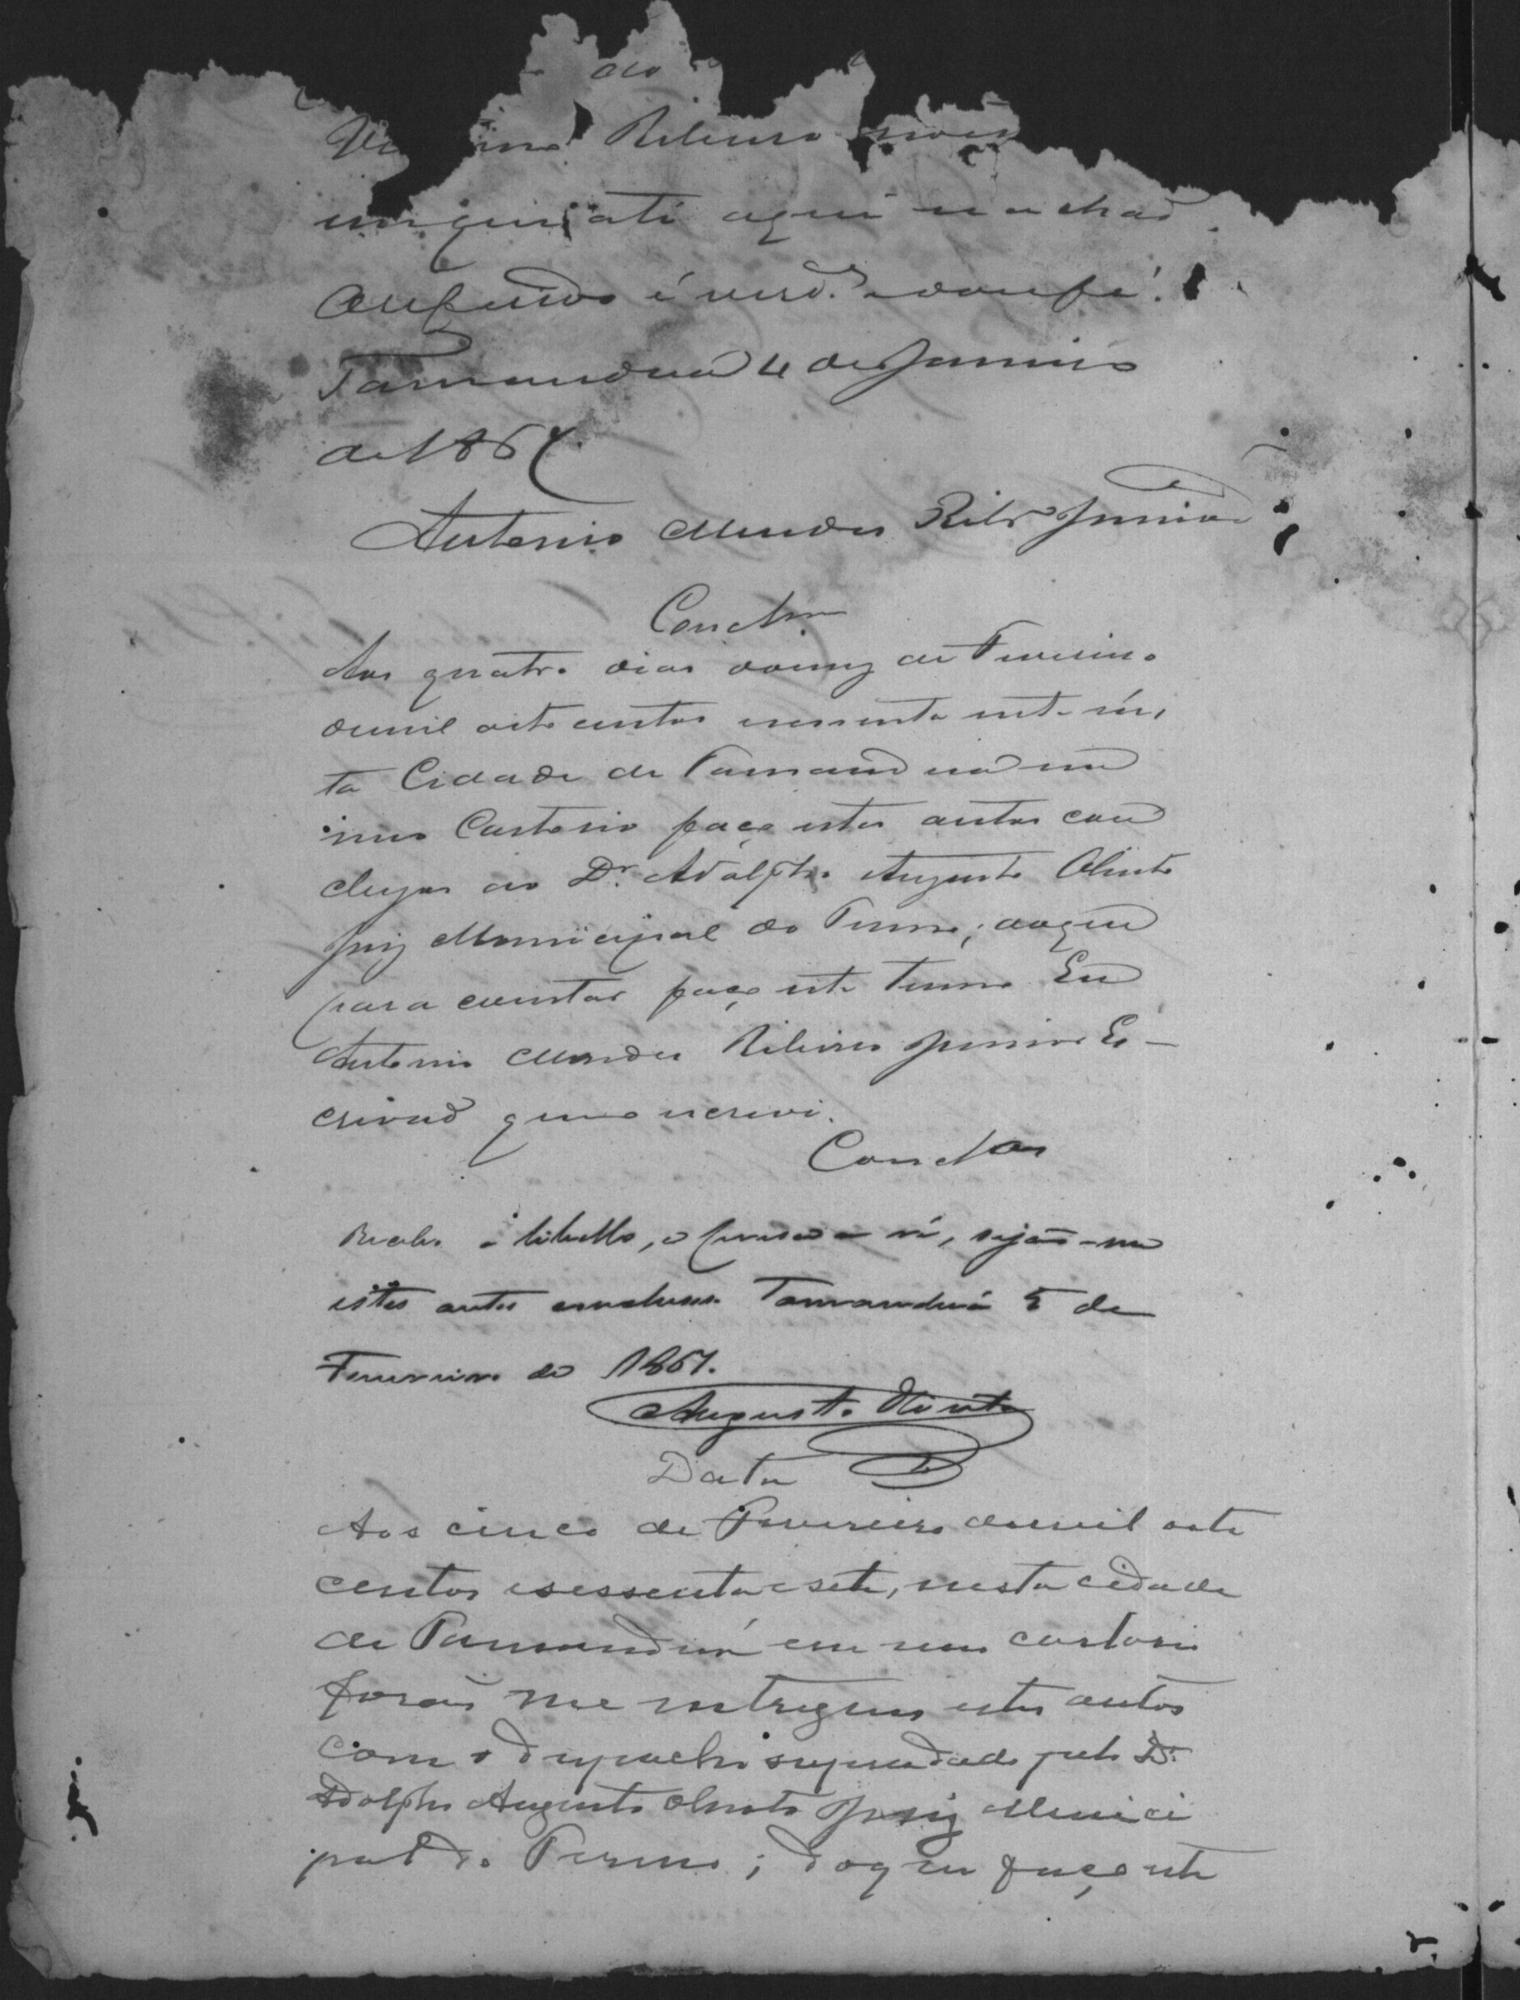 do
Ribeiro
até aqui
é verd.e e dou fé.
Tamanduá 4 de Janeiro
de 1867.
Antonio Mendes Ribr.o Junior
Conclm.
Aos quatro dias do mez de Fevereiro
de mil oito centos e secenta e sete nés,
ta Cidade de Tamanduá em
meu Cartorio faço estes autos con
cluzos ao Dr. Adolpho Augusto Olinto
Juiz Municipal do Termo; do que
para constar faço este termo Eu
Antonio Mendes Ribeiro Junior Es-
crivaõ que o escrevi.
Conclos
Recebo o libello, e prezada a ré, sejaõ-me
estes autos conclusos. Tamanduá 5 de
Fevereiro de 1867.
Augusto Olinto
Data
Aos cinco de Fevereiro de mil oito
centos e sessenta e sete, nesta cidade
de Tamanduá em meu cartorio
foraõ me entregues estes autos
com o despacho supra dado pelo Dr.
Adolpho Augusto Olinto Juiz Munici
pal do Termo; do que faço este